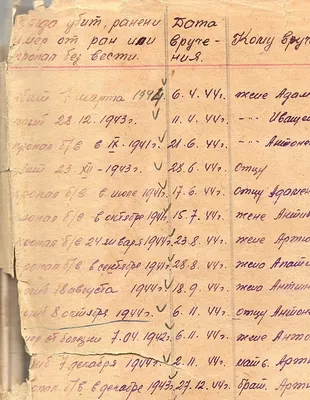 Когда убит, ранени Дата Кому вруче
умер от ран или вруче-
пропал без вести. ния.
убит 7 марта 1942 6.4.44г. жене Адам
погиб 28.12.1943г. 11.4.44г. -"- Иваще
пропал б/в в IX-1941г. 21.6.44г. -"- Антонов
убит 23.XII-1943г. 28.6.44г. отцу
пропал б/в в июле 1941г. 17.6.44г. отцу Адамен
пропал б/в в октябре 1941г. 15.7.44г. жене Антип
пропал б/в 24 января 1944г. 23.8.44г. жене Артю
пропал б/в в сентябре 1941г. 28.8.44г. жене Апати
погиб 18 августа 1944г. 18.9.44г. жене Антип
погиб 8 октября 1944г. 6.11.44г. отцу Антон
умер от болезни 7.04.1942г. 6.11.44г. жене Анто
погиб 7 декабря 1944г. 2.11.44г. мать Артю
пропал б/в в декабре 1943г. 27.12.44г. брат. Арт